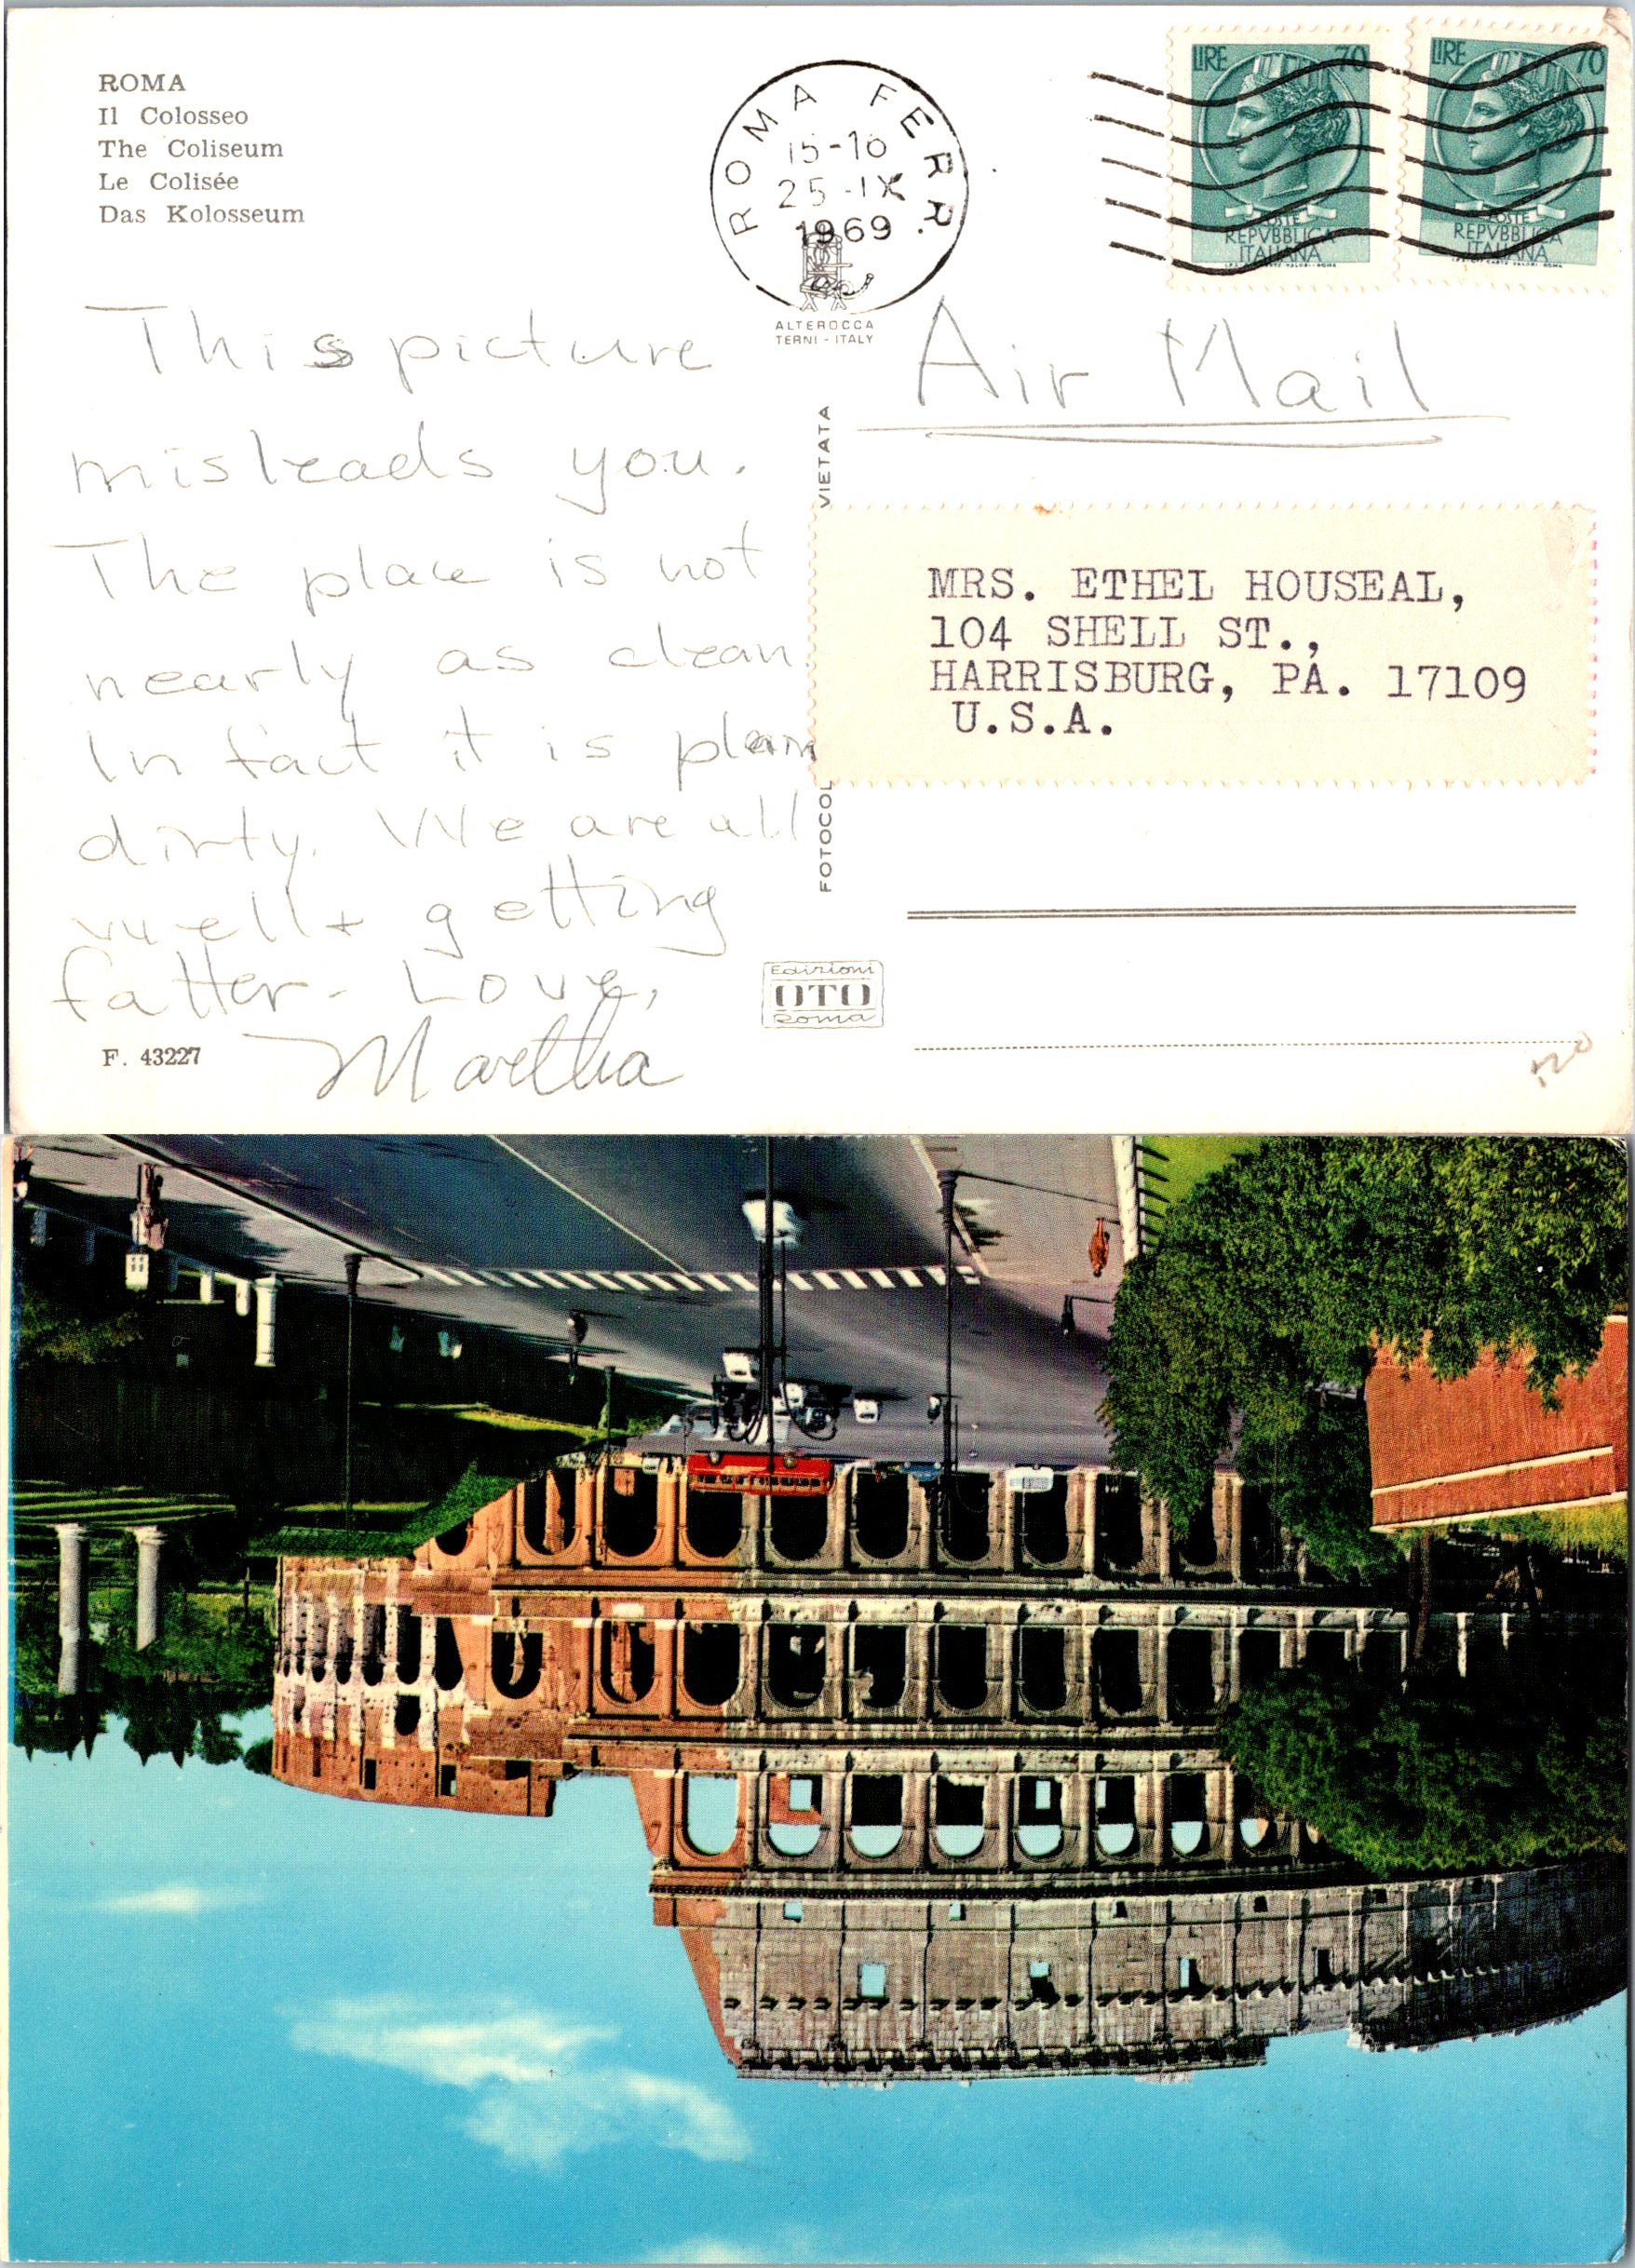 ROMA
Il Colosseo
The Coliseum
Le Colisée
Das Kolosseum
ROMA FERR.
15-16
25-IX
1969
ALTEROCCA
TERNI - ITALY
LIRE 70
POSTE
REPVBBLICA
ITALIANA
LIRE 70
POSTE
REPVBBLICA
ITALIANA
This picture
misleads you.
The place is not
nearly as clean.
In fact it is plain
dirty. We are all
well & getting
fatter. Love,
Martha
Air Mail
VIETATA
FOTOCOL
MRS. ETHEL HOUSEAL,
104 SHELL ST.,
HARRISBURG, PA. 17109
U.S.A.
Edizioni
OTO
Roma
F. 43227